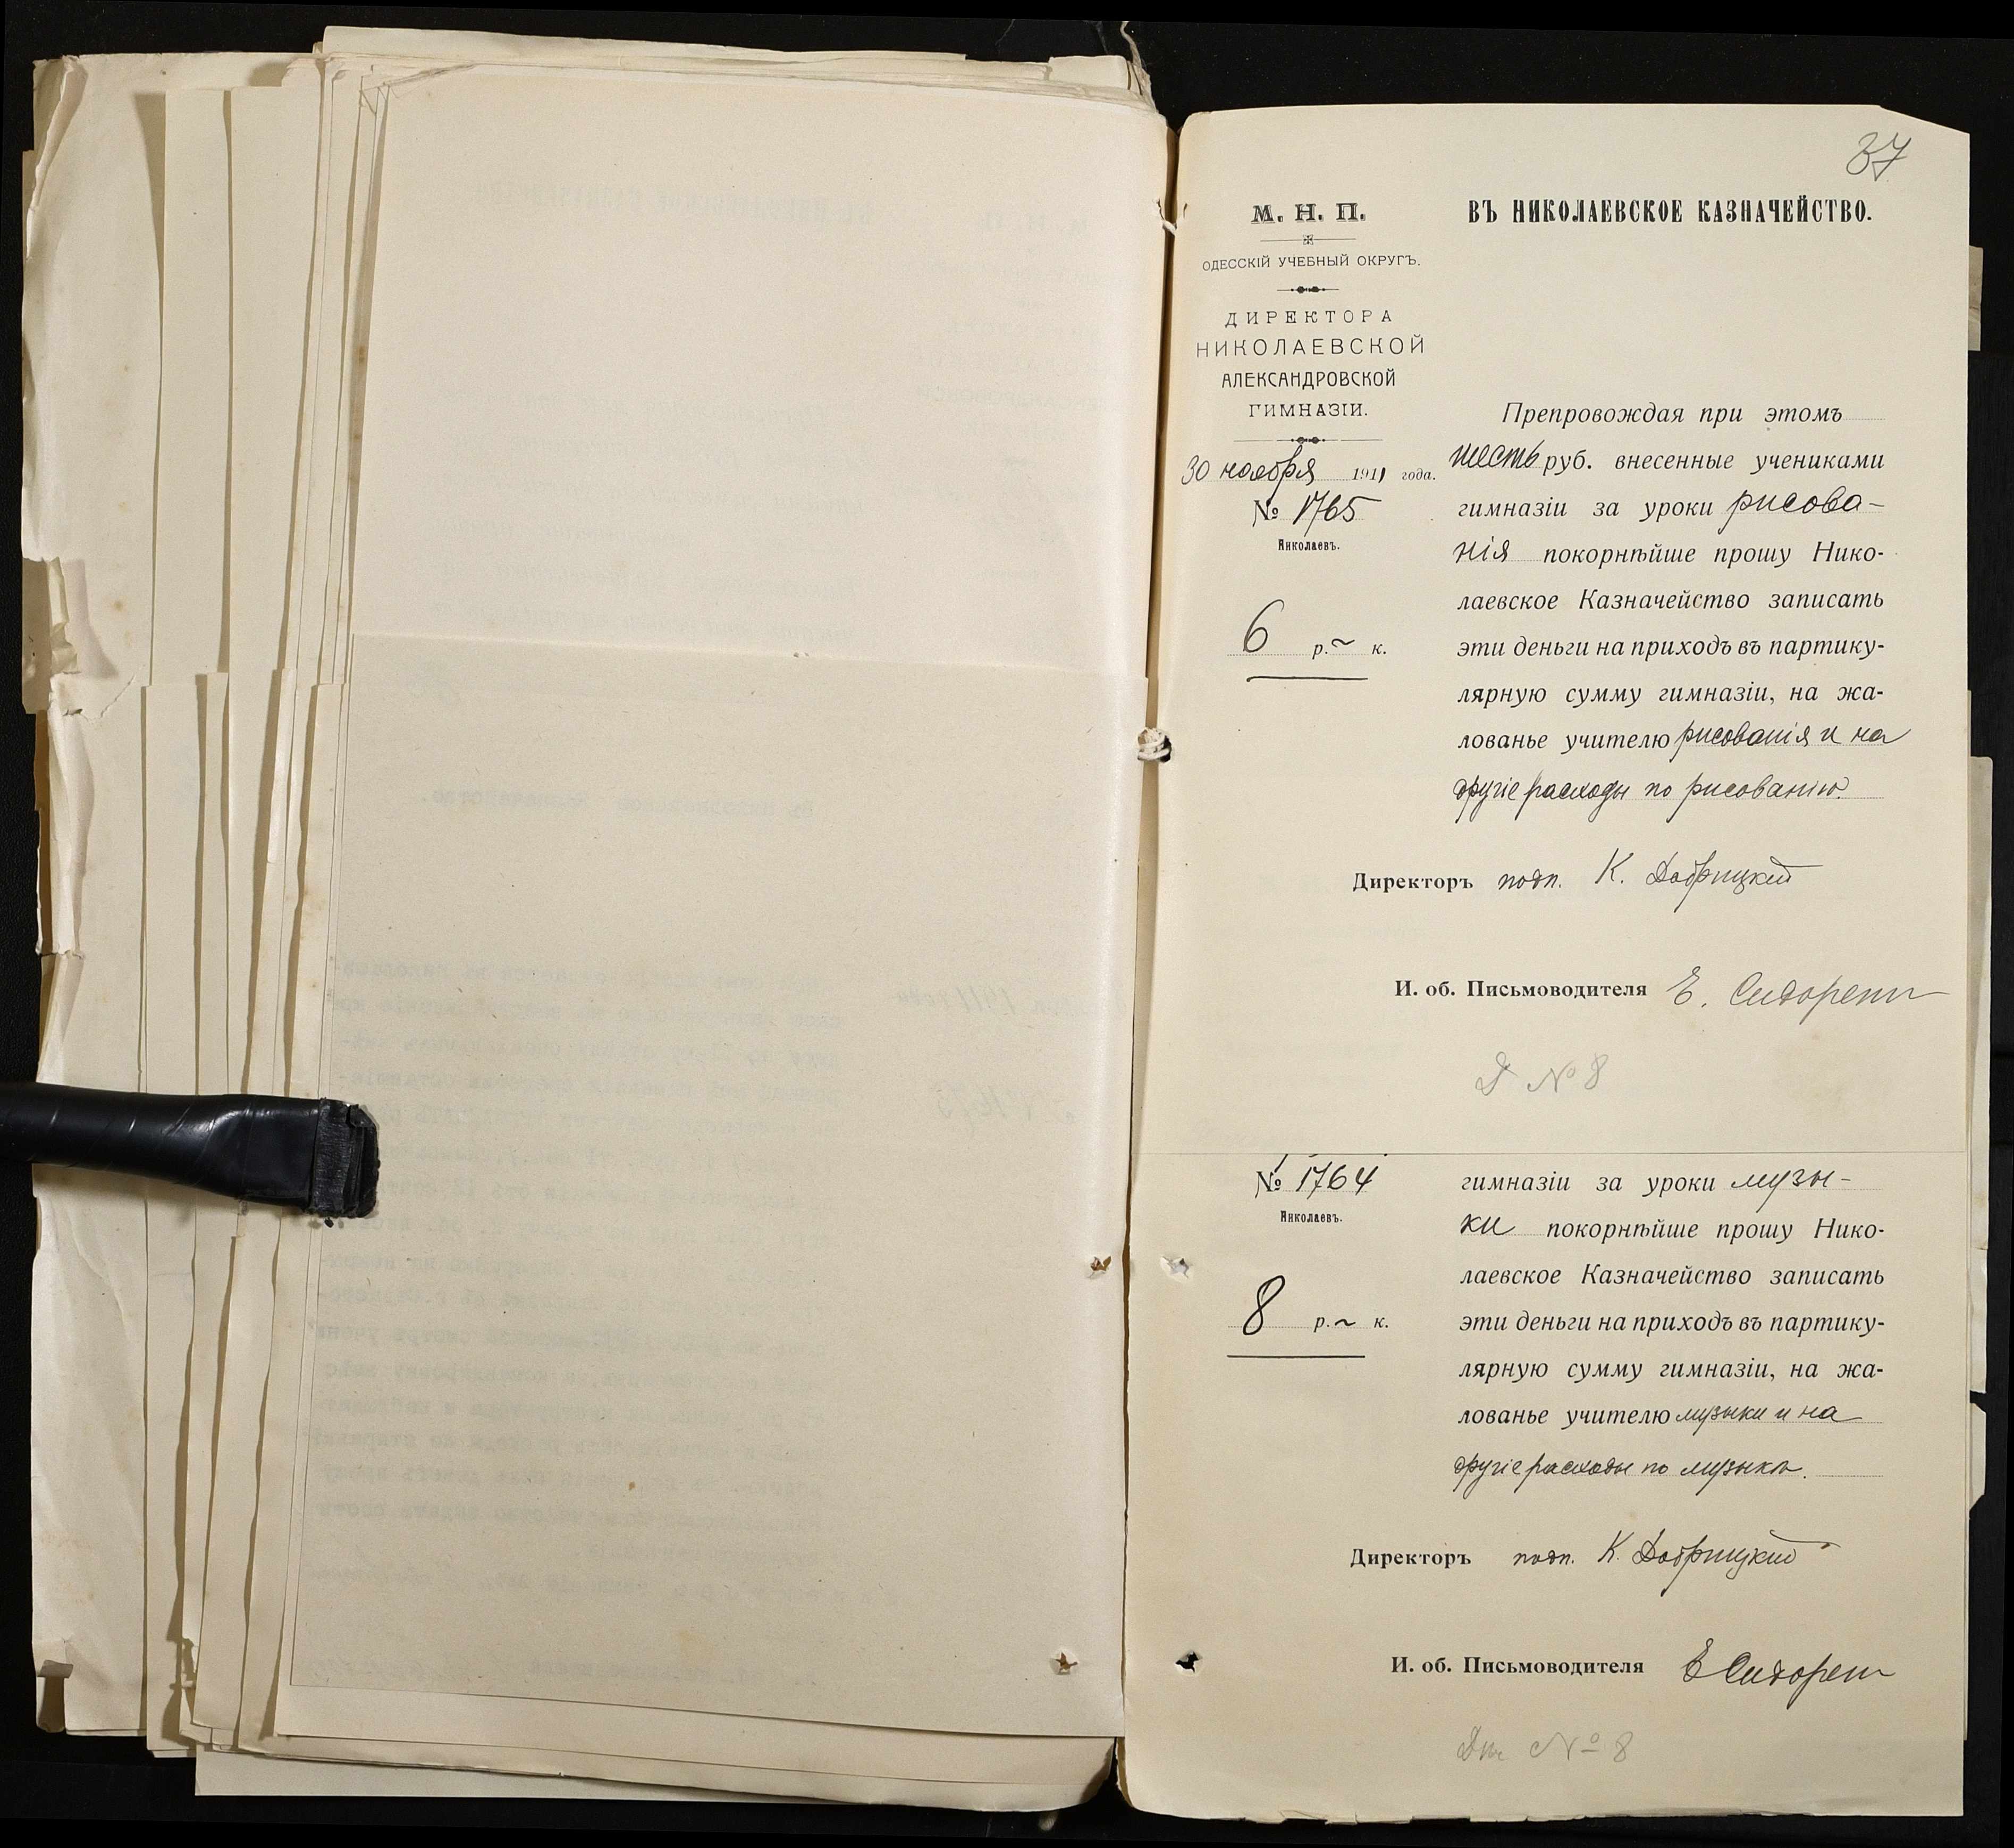 37
М. Н. П.
ОДЕССКІЙ УЧЕБНЫЙ ОКРУГЪ.
ДИРЕКТОРА
НИКОЛАЕВСКОЙ
АЛЕКСАНДРОВСКОЙ
ГИМНАЗІИ.
30 ноября 1911 года.
№ 1765
Николаевъ.
6 р. ~ к.
ВЪ НИКОЛАЕВСКОЕ КАЗНАЧЕЙСТВО.
Препровождая при этомъ
шесть руб. внесенные учениками
гимназіи за уроки рисова-
нія покорнѣйше прошу Нико-
лаевское Казначейство записать
эти деньги на приходъ въ партику-
лярную сумму гимназіи, на жа-
лованье учителю рисованія и на
другіе расходы по рисованію.
Директоръ подп. К. Добрицкій
И. об. Письмоводителя Е. Сидорен
Д № 8
№ 1764
Николаевъ.
8 р. ~ к.
гимназіи за уроки музы-
ки покорнѣйше прошу Нико-
лаевское Казначейство записать
эти деньги на приходъ въ партику-
лярную сумму гимназіи, на жа-
лованье учителю музыки и на
другіе расходы по музыкѣ.
Директоръ подп. К. Добрицкій
И. об. Письмоводителя Е Сидорен
№ 8